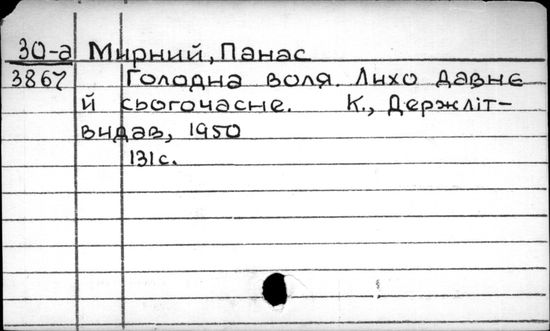 30-а Мирний, Панас
3867 Голодна воля. Лихо давнє
й сьогочасне. К., Держліт-
видав, 1950
131с.